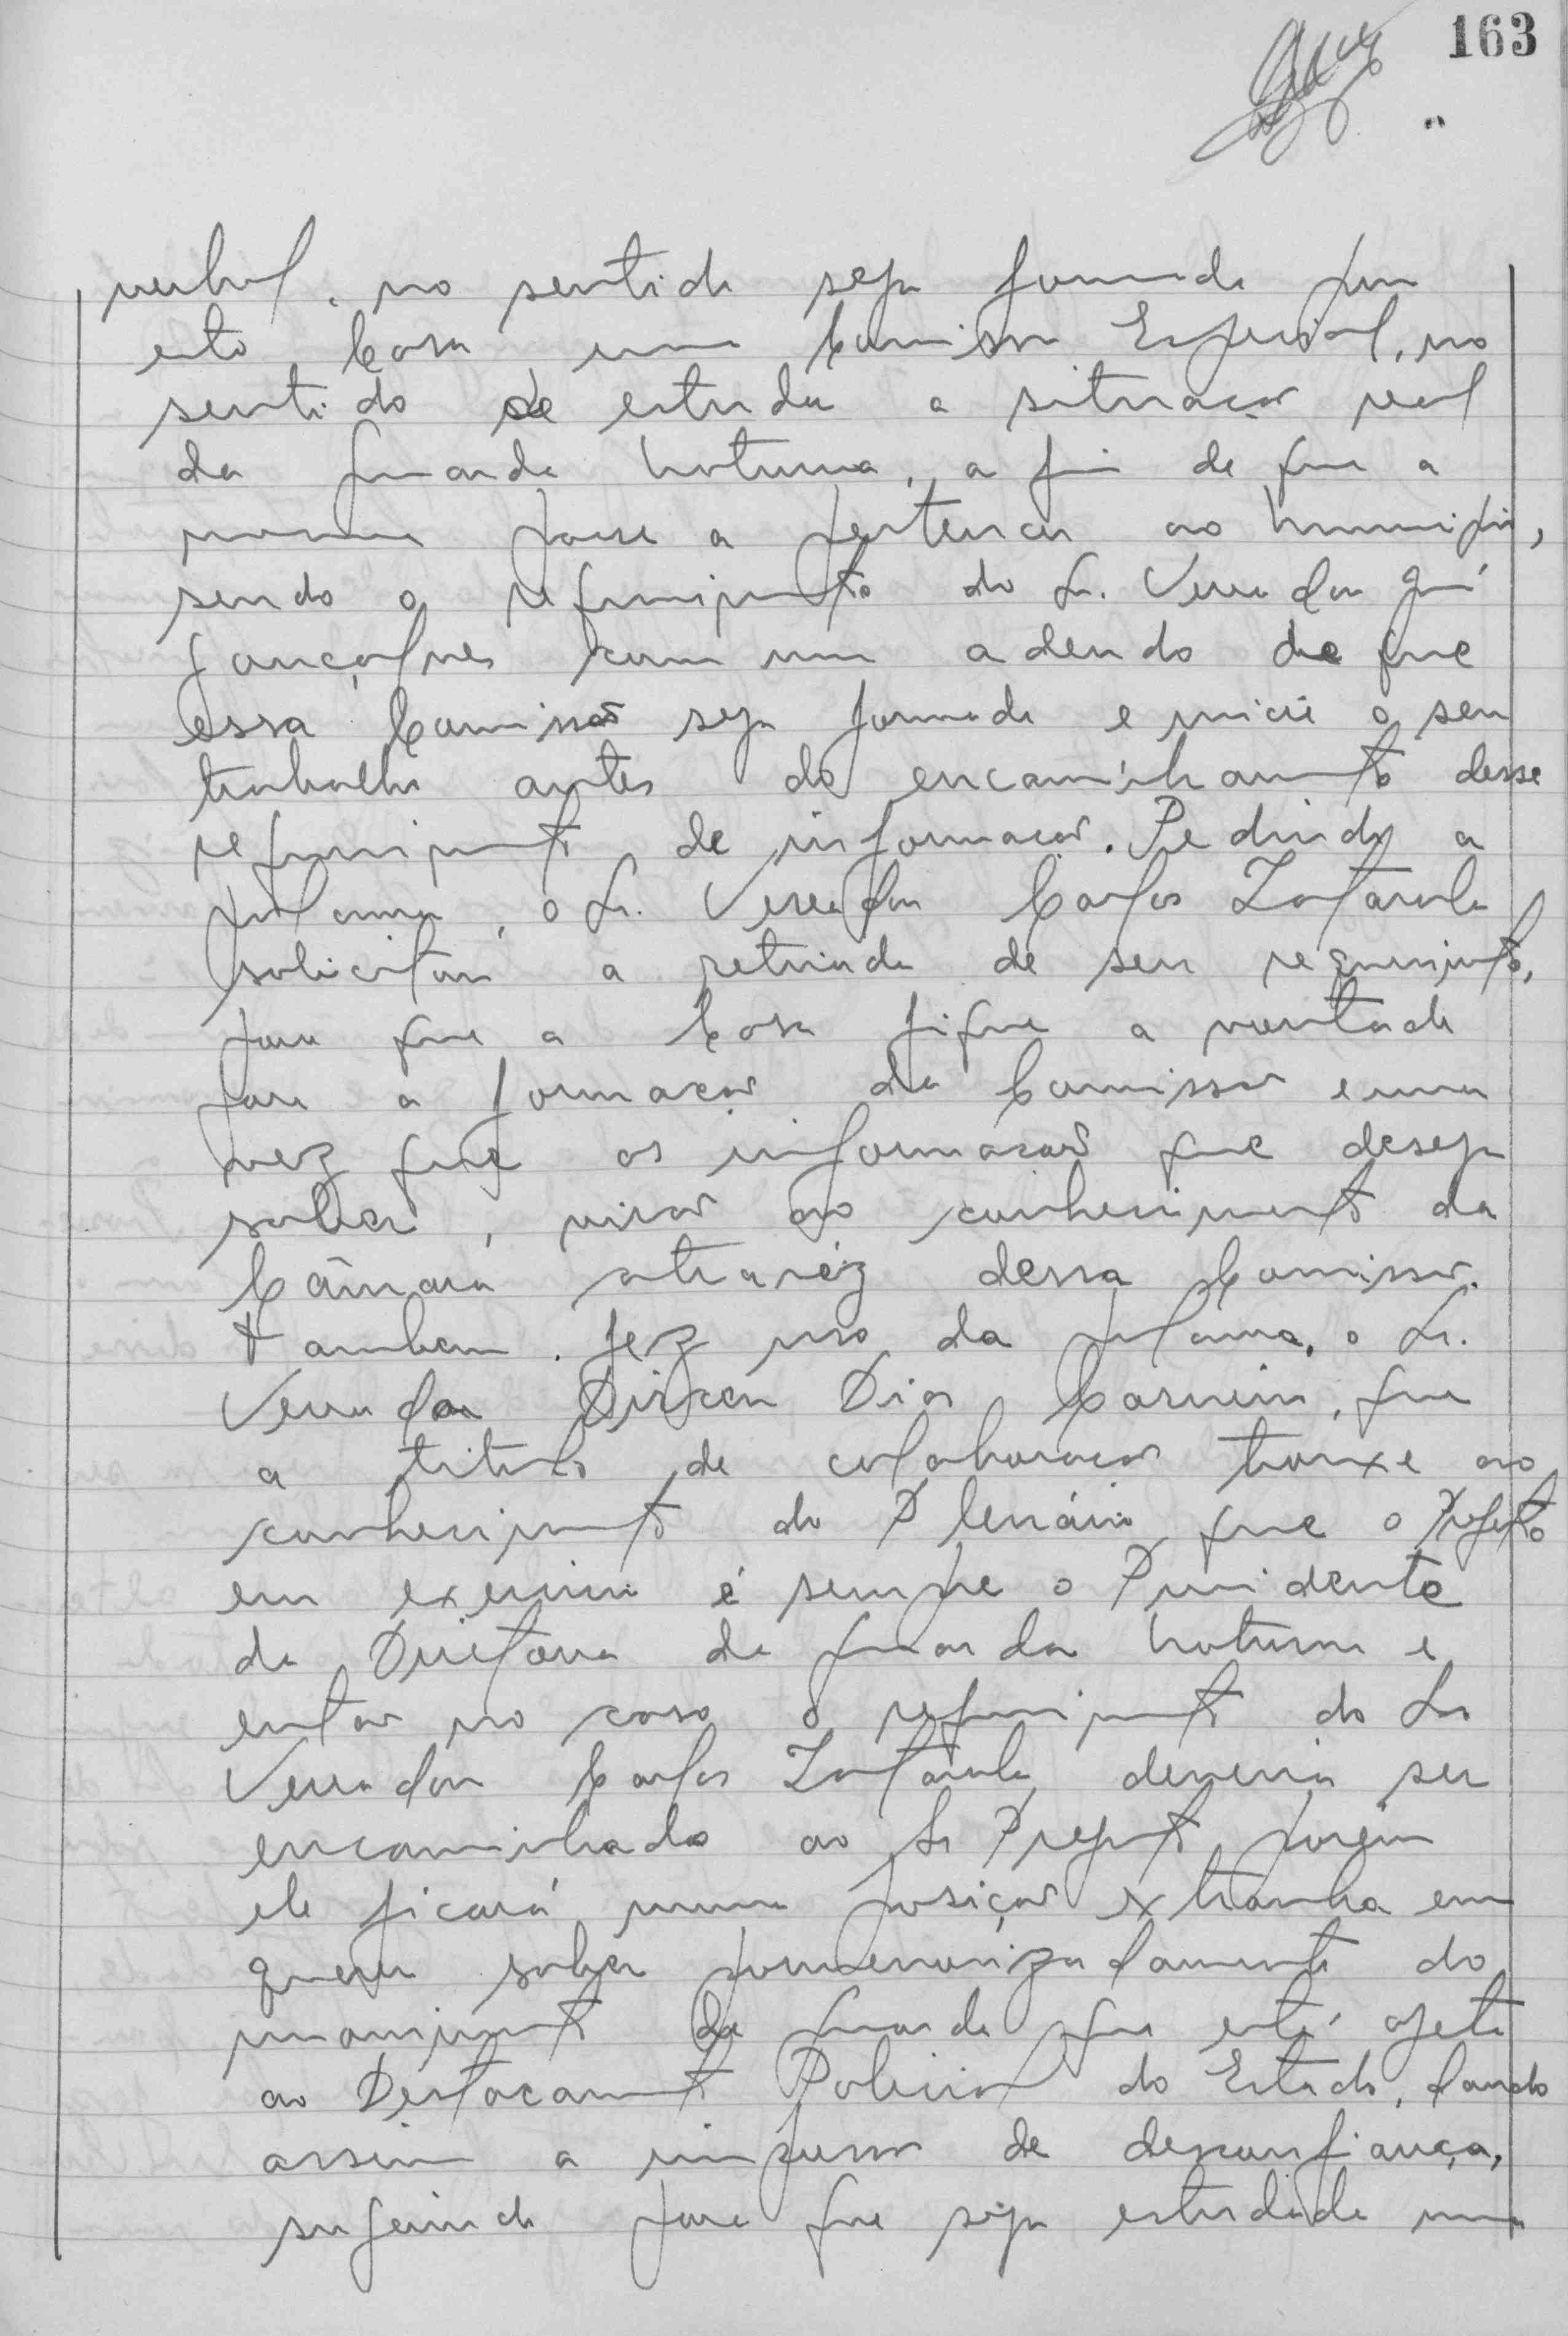 163
verbal, no sentido seja formada por
esta Casa uma Comissão Especial, no
sentido de estudar a situação real
da guarda noturna, a fim de que a
mesma passe a pertencer ao município,
sendo o requerimento do Sr. Vereador
Gonçalves com um adendo de que
essa Comissão seja formada e inicie o seu
trabalho antes do encaminhamento desse
requerimento de informação. Pedindo a
palavra, o Sr. Vereador Carlos
solicitou a retirada de seu requerimento,
para que a Casa fique a vontade
para a formação da Comissão e uma
vez que as informações que deseja
saber, virão ao conhecimento da
Câmara atravéz dessa Comissão.
Tambem fez uso da palavra, o Sr.
Vereador Dirceu Dias Carneiro, que
a titulo de colaboração trouxe ao
conhecimento do Plenário que o Prefeito
em exercicio é sempre o Presidente
da Diretoria da guarda noturna e
então no caso o requerimento do Sr
Vereador Carlos deveria ser
encaminhado ao Sr Prefeito, porém
ele ficará numa posição extranha em
querer saber pormenorizadamente do
movimento da guarda que está afeta
ao Destacamento Policial do Estado, dando
assim a impressão de desconfiança,
sugerindo para que seja estudada uma